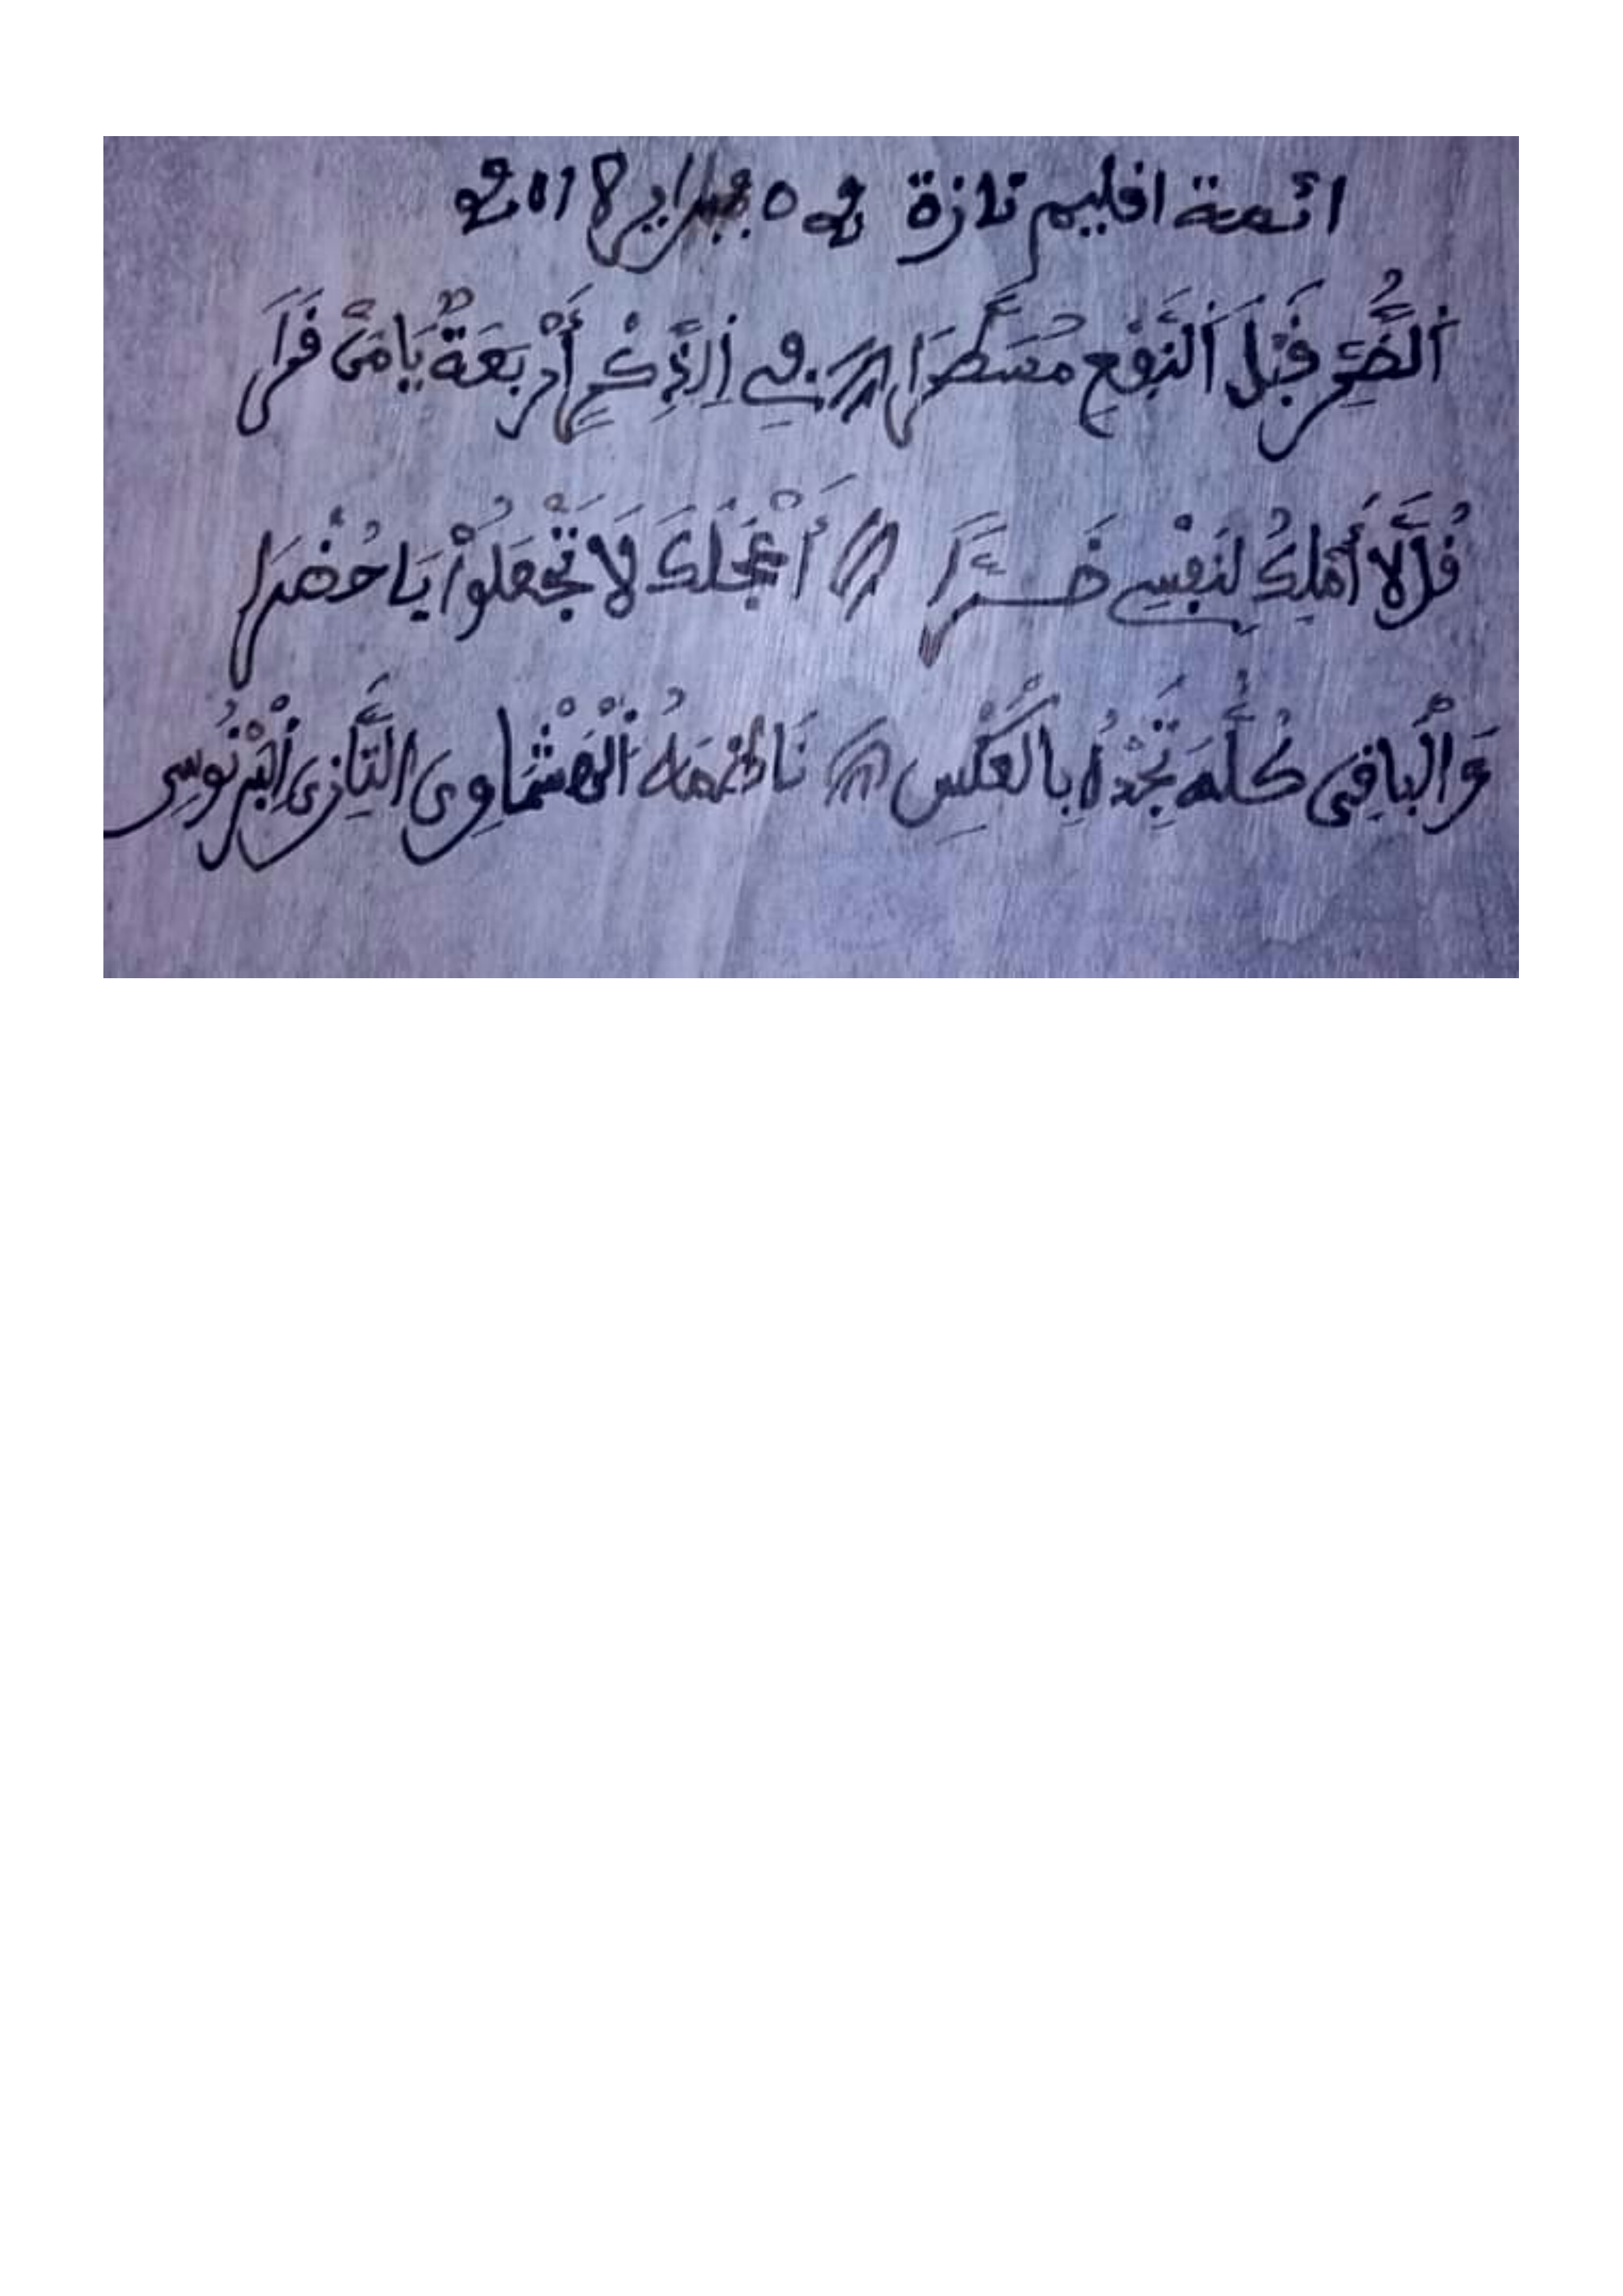 ائمة اقليم تازة 20 فبراير 2018
اَلضُّرُّ قَبْلَ اَلنَّفْعِ مُسَطَّرَا فِي اِلذِّكْرِ أَرْبَعَةٌ يَا مَنْ قَرَا
قُل لَّا أَمْلِكُ لِنَفْسِي ضَرًّا أَعْجَلَكَ لَا تَجْعَلُواْ يَا حُضَّرَا
وَالْبَاقِي كُلُّهُ تَجِدْهُ بِالْعَكْسِ نَاظِمُهُ التَّازِي اَلْبَرْنُوسِي